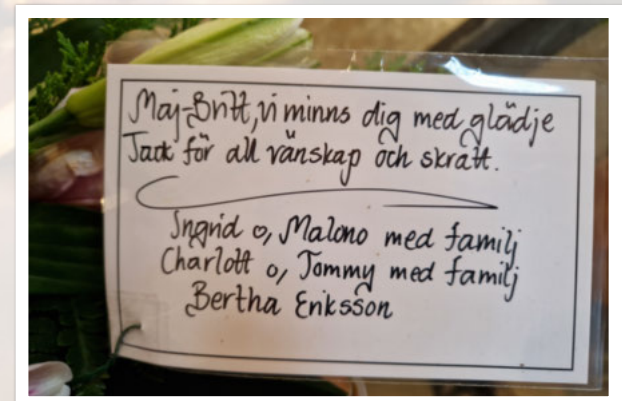 Maj-Britt, vi minns dig med glädje
Tack för all vänskap och skratt.
Ingrid o, Malono med familj
Charlott o, Tommy med familj
Bertha Eriksson